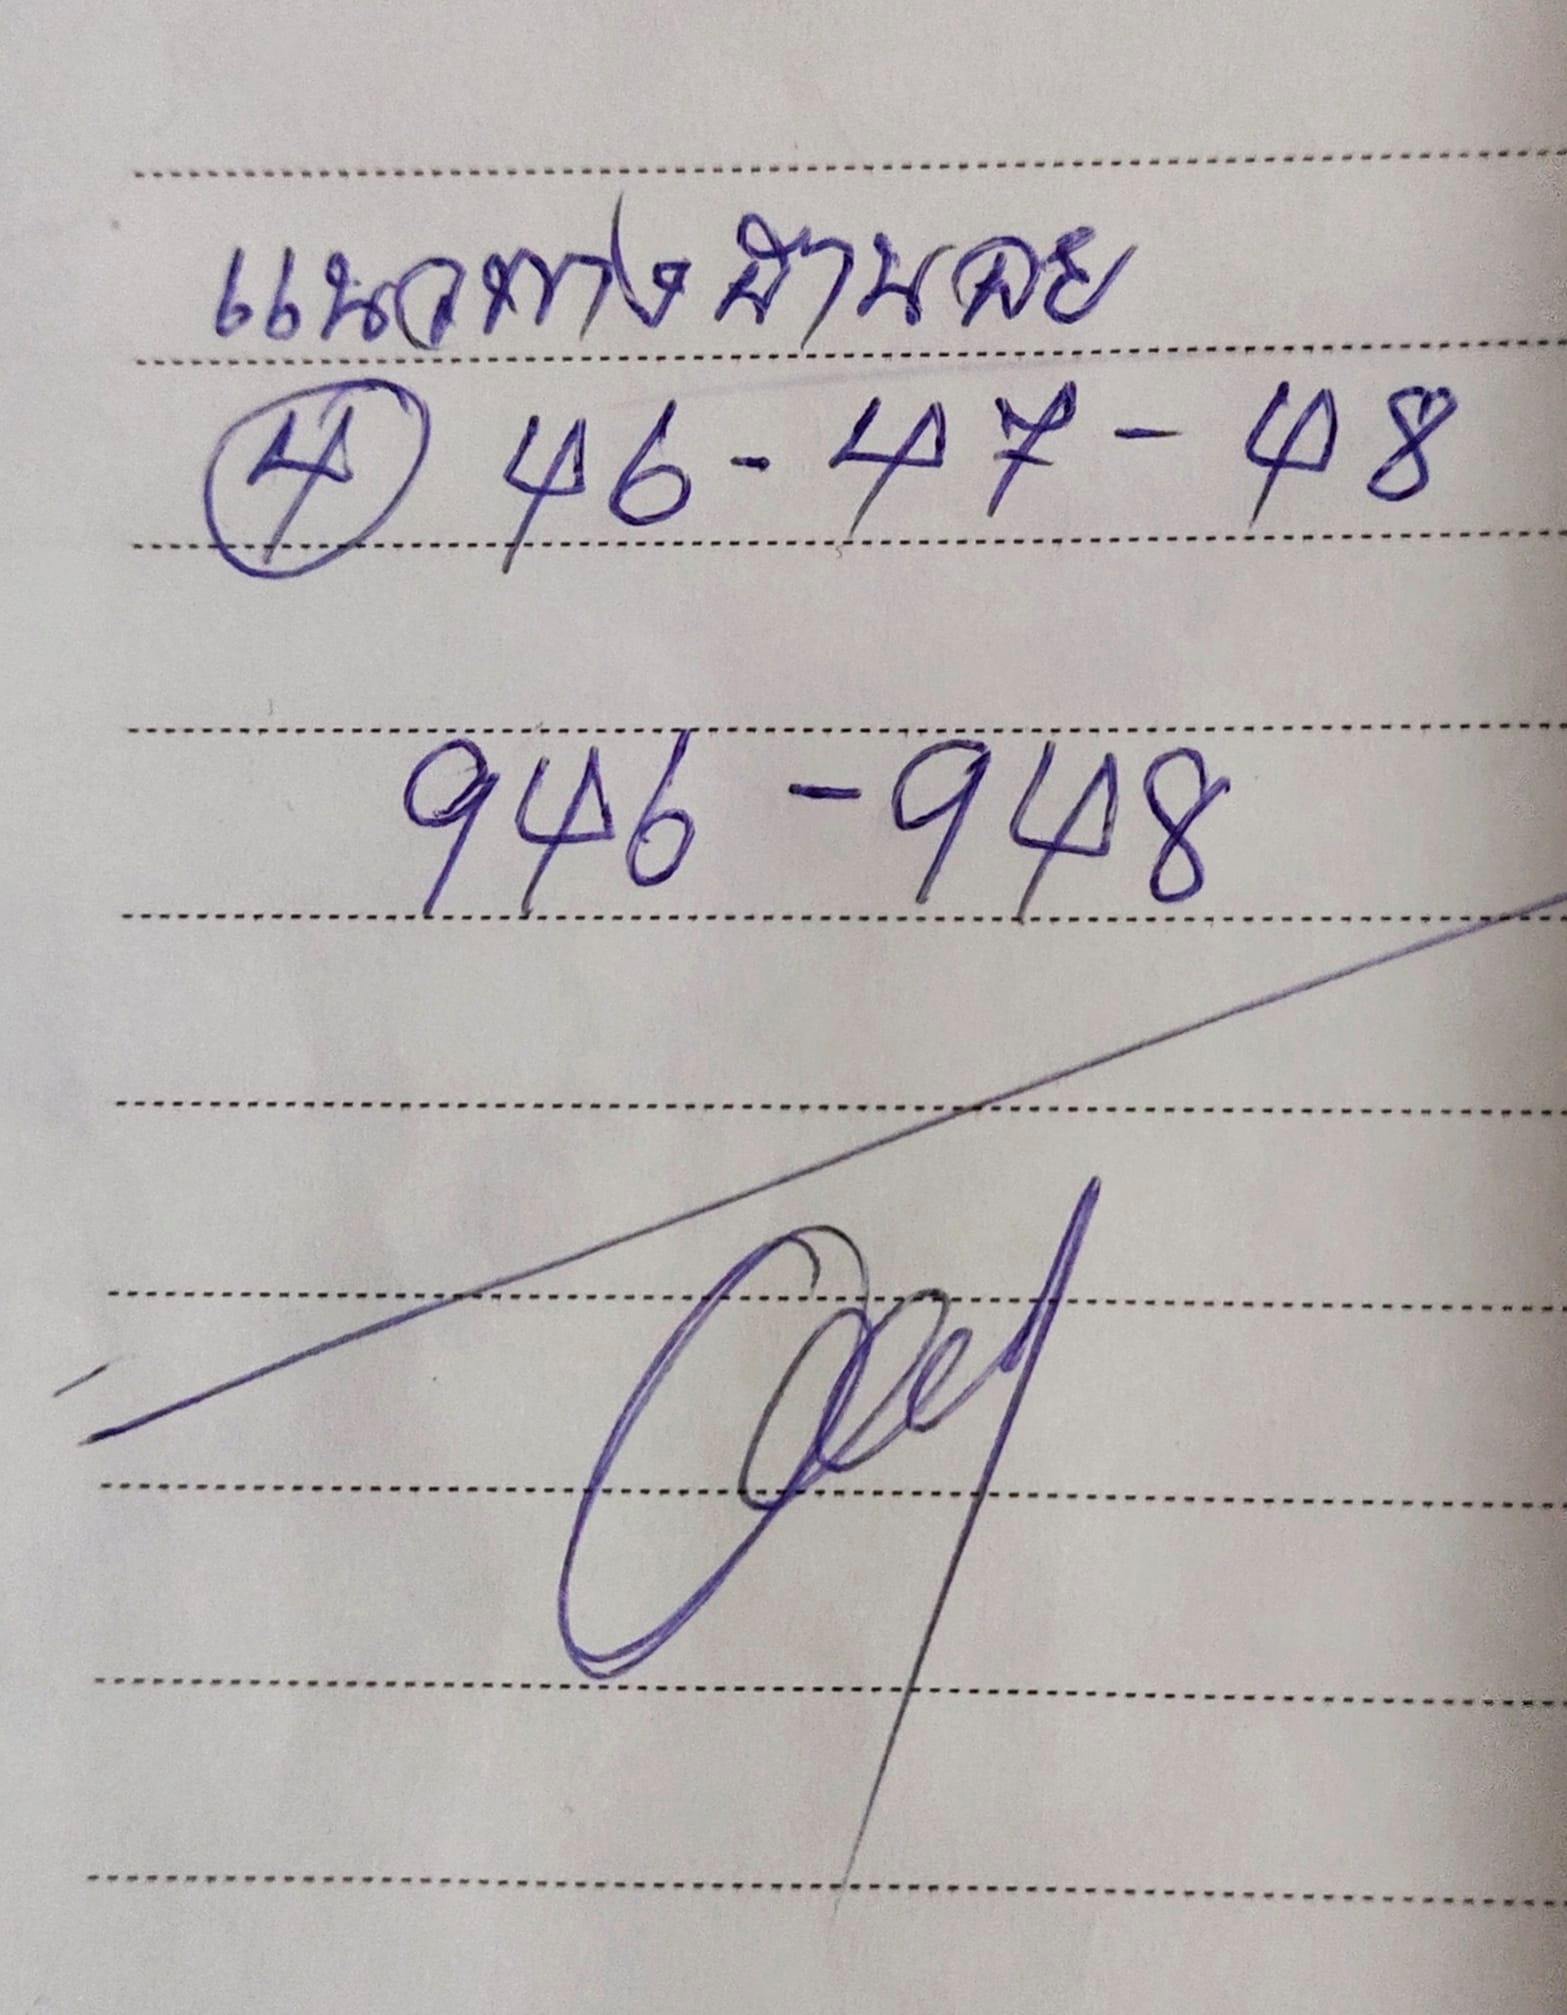 แนวทางบ้านดอย
4 46 - 47 - 48
946 - 948